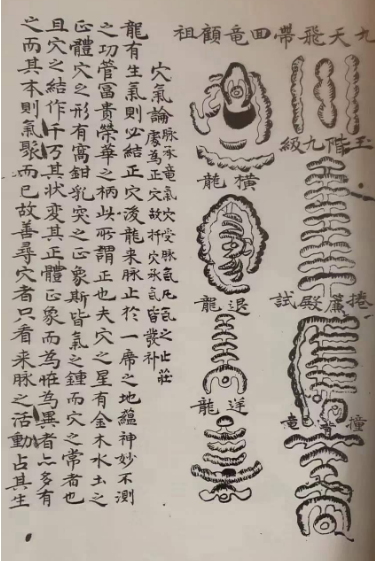 九天飛帶
回竜顧祖
玉階九級
橫龍
捲簾殿試
退龍
撞竜
逆龍
穴氣論
脉承竜氣穴受脉氣凡氣之止莊
處為正穴故扦穴承氣皆發补
龍有生氣則必結正穴後龍來脉止於一席之地蘊神妙不測
之功管富貴榮華之柄此所謂正也夫穴之星有金木水土之
正體穴之形有窩鉗乳突之正象斯皆氣之鍾而穴之常者也
且穴之結作千万其狀變其正體正象而為恠為異者亦多有
之而其本則氣聚而已故善尋穴者只看來脉之活動占其生